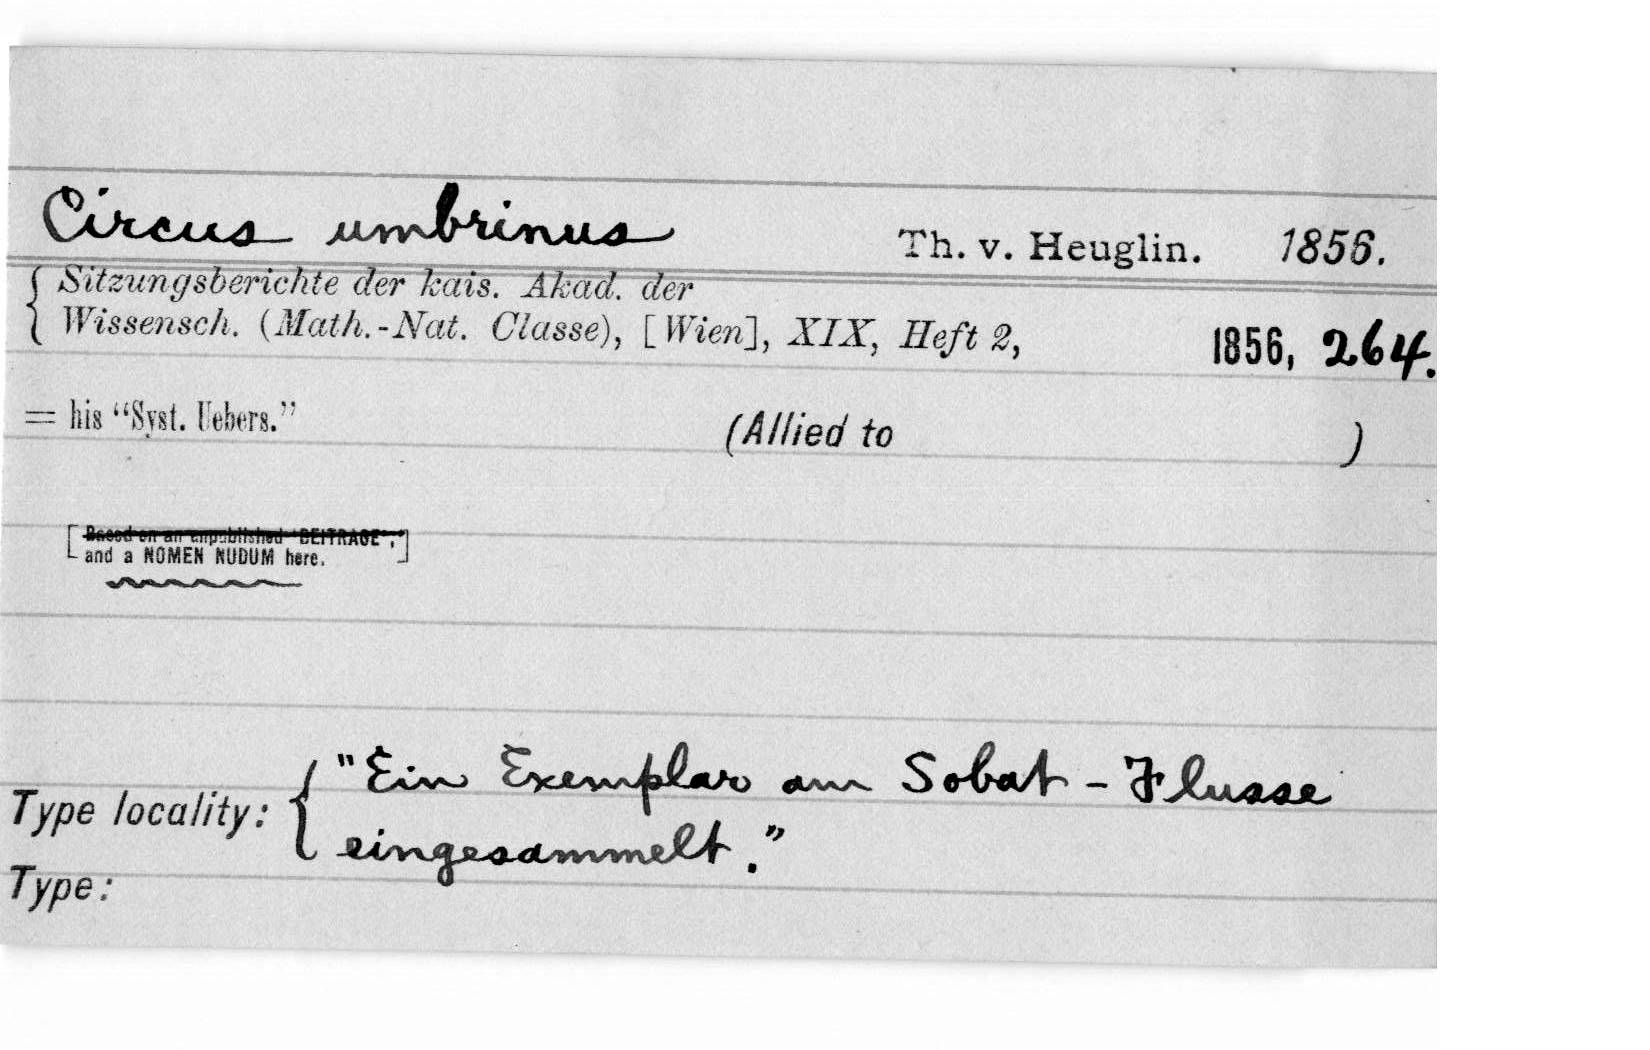 Circus umbrinus Th. v. Heuglin. 1856.
Sitzungsberichte der kais. Akad. der
Wissensch. (Math.-Nat. Classe), [Wien], XIX, Heft 2, 1856, 264.
= his "Syst. Uebers." (Allied to )
[Based on an unpublished "BEITRAGE",
and a NOMEN NUDUM here.]
Type locality: { "Ein Exemplar am Sobat-Flusse
eingesammelt."
Type: